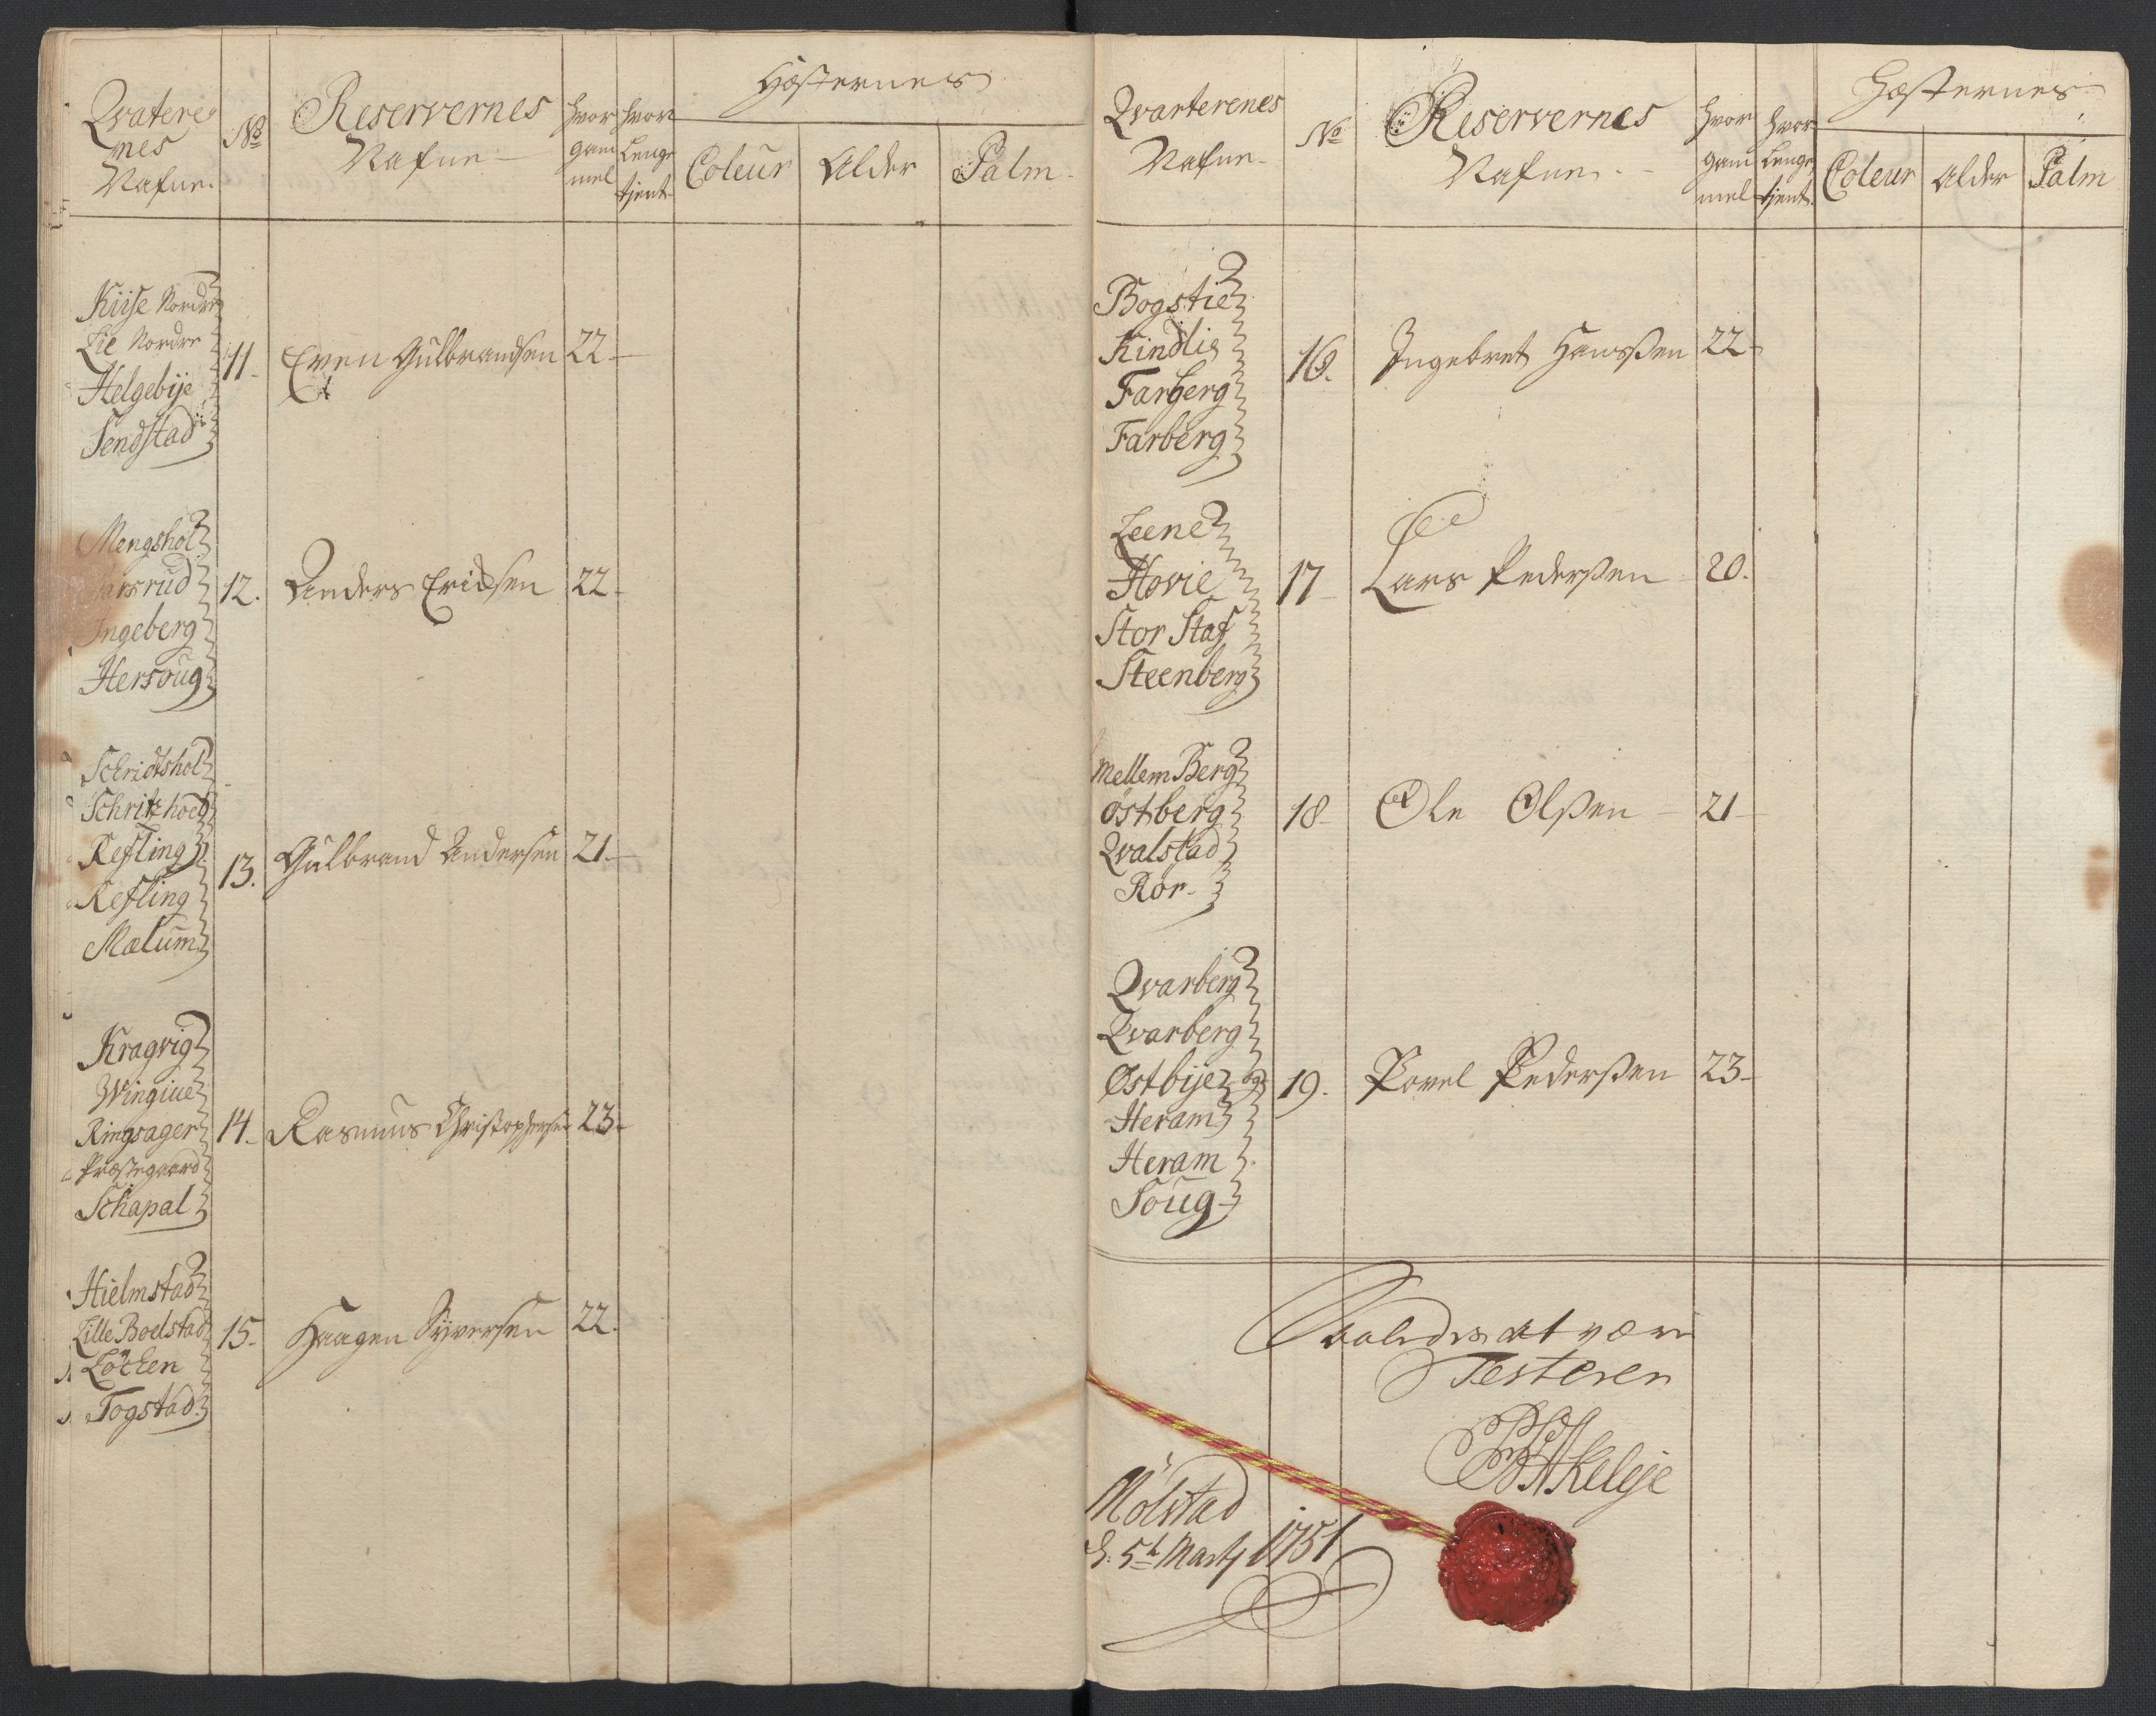 Qvatere
nes
Nafne.
No
Reservernes
Nafne
hvor
gam
mel
hvor
Lenge
tjent
Hæsternes
Coleur
Alder
Palm
Kiise Nordre
Lie Nordre
Helgebije
Sendstad
11
Even Gulbrandsen
22
Mengshol
Ingeberg
Hersoug
12.
Anders Ericksen
22
Schridtshol
Schritzhoel
Refling
Refling
Mælum
13.
Gulbrand Andersen
21
Kragvig
Wingiue
Ringsager
Præstegaard
Schapal
14
Rasmus Christophersen
23
Hielmstad
Lille Boelstad
Löcken
Togstad
15
Haagen Syversen
22.
Qvarterenes
Nafne
No
Reservernes
Nafne
hvor
gam
mel
hvor
Lenge
tjent
Hæsternes
Coleur
Alder
Palm
Bogstie
Kindlie
Farberg
Farberg
16.
Ingebret Hansßen
22
Leene
Hovie
Stor Staf
Steenberg
17
Lars Pederßen
20.
Mellem Berg
Östberg
Qvalstad
Rör
18
Ole Olßen
21
Qvarberg
Qvarberg
Østbije og
Heram
Heram
Soug
19.
Povel Pederßen
23
Saaledes at være
Testerer
Akeleje
Mölstad
d. 5t Martj 1751